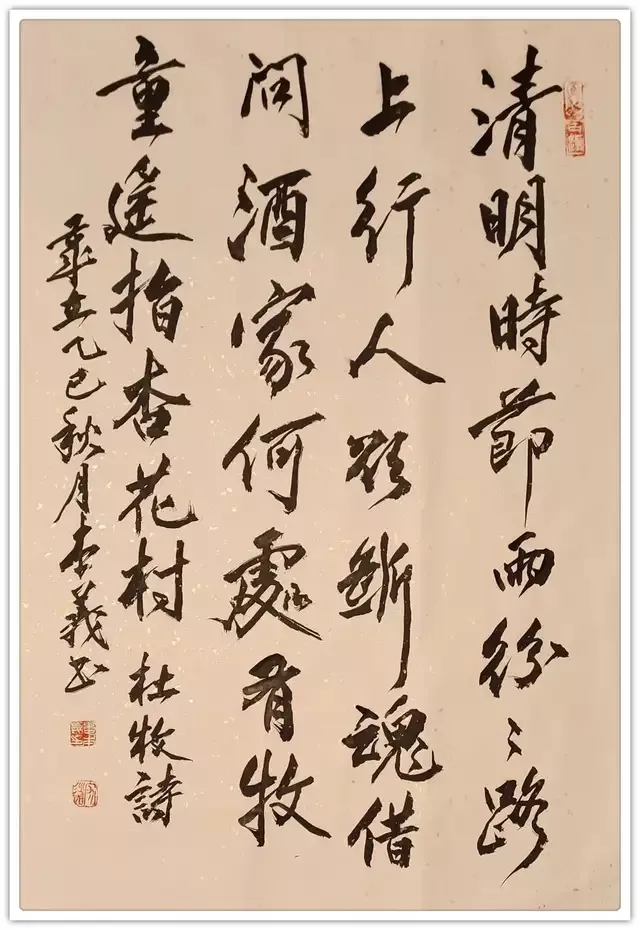 清明時節雨紛〻路
上行人欲斷魂借
問酒家何處有牧
童遙指杏花村 杜牧詩
乙巳秋月義书